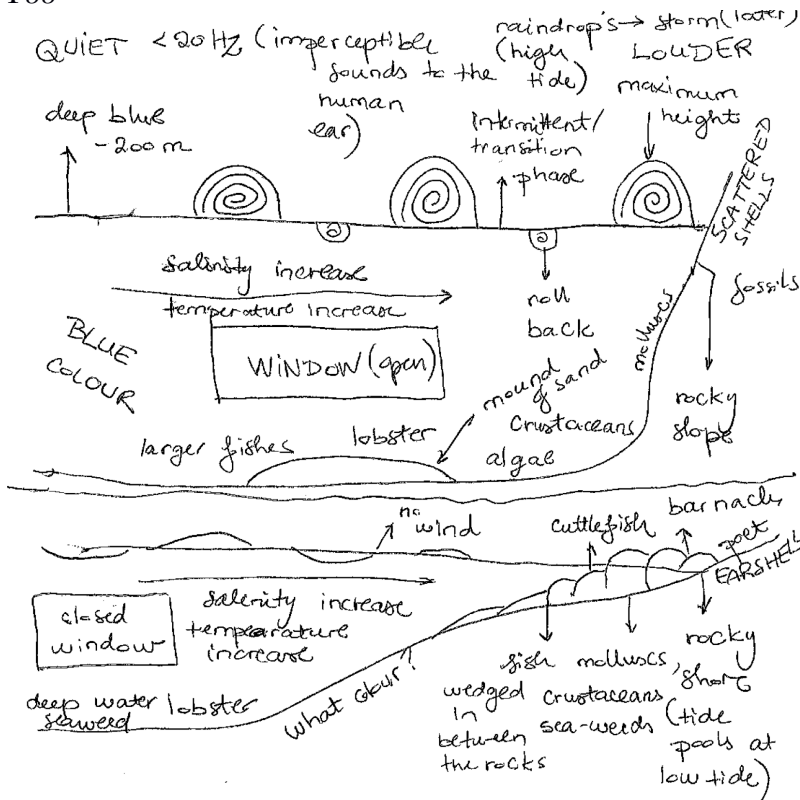 QUIET <20 HZ (imperceptible
sounds to the
human
ear)
raindrop's → storm (later)
(high
tide)
LOUDER
deep blue
-200 m
Intermittent/
transition
phase
maximum
height
SCATTERED
SHELLS
salinity increase
temperature increase
roll
back
molluscs
fossils
BLUE
COLOUR
WINDOW (open)
mound
of sand
rocky
slope
larger fishes
lobster
crustaceans
algae
no
wind
cuttlefish
barnacle
poet
EARSHELL
closed
window
salenity increase
temperature
increase
What colour?
deep water lobster
seaweed
fish
wedged
in
between
the rocks
molluscs,
crustaceans
sea-weeds
rocky
shore
(tide
pools at
low tide)